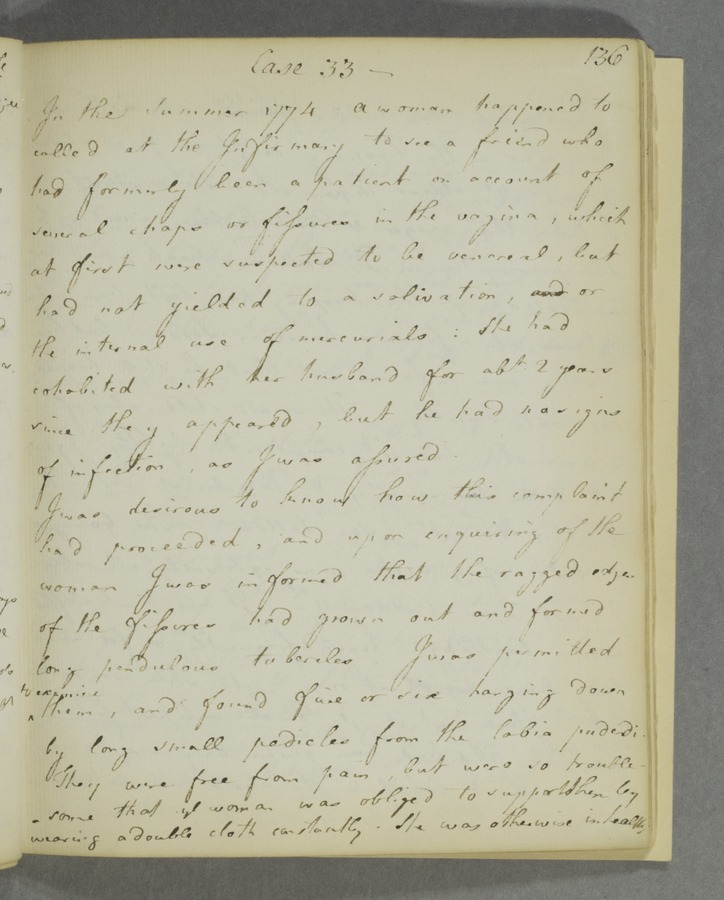 Case 33 —
136
In the summer 1774 a woman happened to
called at the Infirmary to see a friend who
had formerly been a patient on account of
several chaps or fissures in the vagina, which
at first were suspected to be venereal, but
had not yielded to a salivation, and or
the internal use of mercurials : She had
cohabited with her husband for abt 2 years
since they appeared, but he had no signs
of infection, as I was assured.
I was desirous to know how this complaint
had proceeded, and upon enquiring of the
woman I was informed that the ragged edges
of the fissures had grown out and formed
long pendulous tubercles I was permitted
to examine
them, and found five or six hanging down
by long small pedicles from the labia pudendi.
They were free from pain, but were so trouble-
-some that ye woman was obliged to support them by
wearing a double cloth constantly. She was otherwise in health.